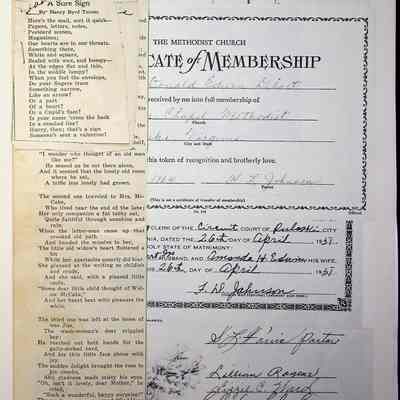 A Sure Sign
By Nancy Byrd Turner
Here's the mail, sort it quick—
Papers, letters, notes,
Postcard scenes,
Magazines;
Our hearts are in our throats.
Something there,
White and square,
Sealed with wax, and bumpy—
At the edges flat and thin,
In the middle lumpy!
When you feel the envelope,
Do your fingers trace
Something narrow,
Like an arrow?
Or a part
Of a heart?
Or a Cupid's face?
Is your name 'cross the back
In a crooked line?
Hurry, then; that's a sign
Someone's sent a valentine!
"I wonder who thought of an old man
like me?"
He seemed as he sat there alone,
And it seemed that the lonely old room
where he sat,
A trifle less lonely had grown.
The second one traveled to Mrs. Mc-
Cabe,
Who lived near the end of the lane;
Her only companion a fat tabby cat,
Quite faithful through sunshine and
rain.
When the letter-man came up that
crooked old path
And handed the missive to her,
The little old widow's heart fluttered a
bit
While her spectacles queerly did blur.
She glanced at the writing so childish
and crude,
And she said, with a pleased little
smile,
"Some dear little child thought of Wid-
ow McCabe,"
And her heart beat with pleasure the
while.
The third one was left at the home of
wee Jim,
The washwoman's dear crippled
boy;
He reached out both hands for the
gaily-marked card,
And his thin little face shone with
joy.
The sudden delight brought the rose to
his cheeks,
And gladness made misty his eyes,
"Oh, isn't it lovely, dear Mother," he
cried,
"Such a wonderful, happy surprise!"
THE METHODIST CHURCH
CATE of MEMBERSHIP
received by me into full membership of
Chapel Methodist
Church
City and State
this token of recognition and brotherly love.
Pastor
(This is not a certificate of transfer of membership)
CLERK OF THE Circuit COURT OF Pulaski CITY
DATED THE 26th DAY OF April 1951.
HOLY STATE OF MATRIMONY:
HUSBAND, AND Amanda H. Edwin HIS WIFE.
26th DAY OF April 1951.
F. D. Johnson
Pastor
Lillian